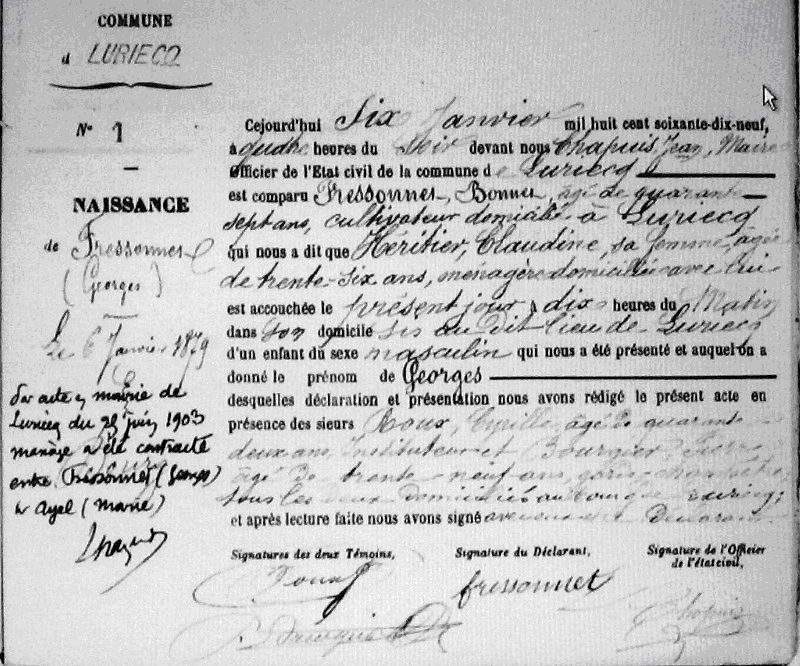 COMMUNE
d LURIECQ
N° 1
NAISSANCE
de Fressonnet
(Georges)
Le 6 Janvier 1879
Par acte en mairie de
Luriecq du 29 juin 1903
mariage a été contracté
entre Fressonnet (Georges)
et Ayel (Marie)
Cejourd'hui Six Janvier mil huit cent soixante-dix-neuf,
à quatre heures du Soir devant nous Chapuis, Jean, Maire
Officier de l'Etat civil de la commune de Luriecq
est comparu Fressonnet, Bonnet, âgé de quarante
sept ans, cultivateur domicilié à Luriecq
qui nous a dit que Héritier, Claudine, sa femme, âgée
de trente-six ans, ménagère domiciliée avec lui
est accouchée le présent jour à dix heures du Matin
dans son domicile sis au dit lieu de Luriecq
d'un enfant du sexe masculin qui nous a été présenté et auquel on a
donné le prénom de Georges
desquelles déclaration et présentation nous avons rédigé le présent acte en
présence des sieurs Roux, Cyrille, âgé de quarante
deux ans, Instituteur et Bourgier, Pierre,
âgé de trente neuf ans, garde champêtre
tous les deux domiciliés au bourg de Luriecq;
et après lecture faite nous avons signé avec le Déclarant
Signatures des deux Témoins,
Signature du Déclarant,
Signature de l'Officier
de l'état civil,
Roux
fressonnet
Chapuis